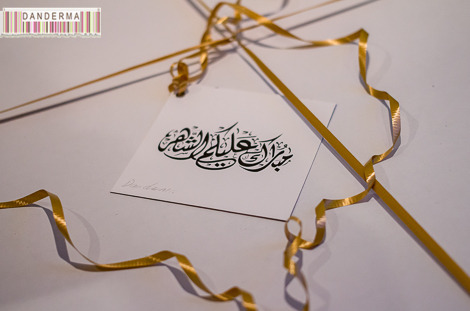 DANDERMA
مبارك عليكم الشهر